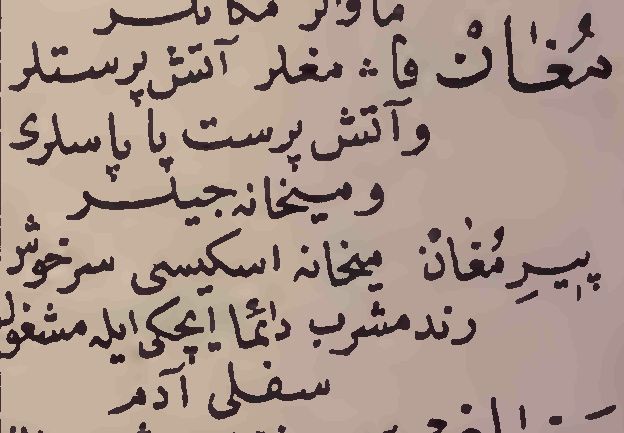 مُغَانْ فا ∴ مغلر آتش پرستلر
و آتش پرست پاپاسلری
و میخانه جیلر
پیرِ مُغَانْ میخانه اسکیسی سرخوش
رند مشرب دائما ایچکی ایله مشغول
سفلی آدم